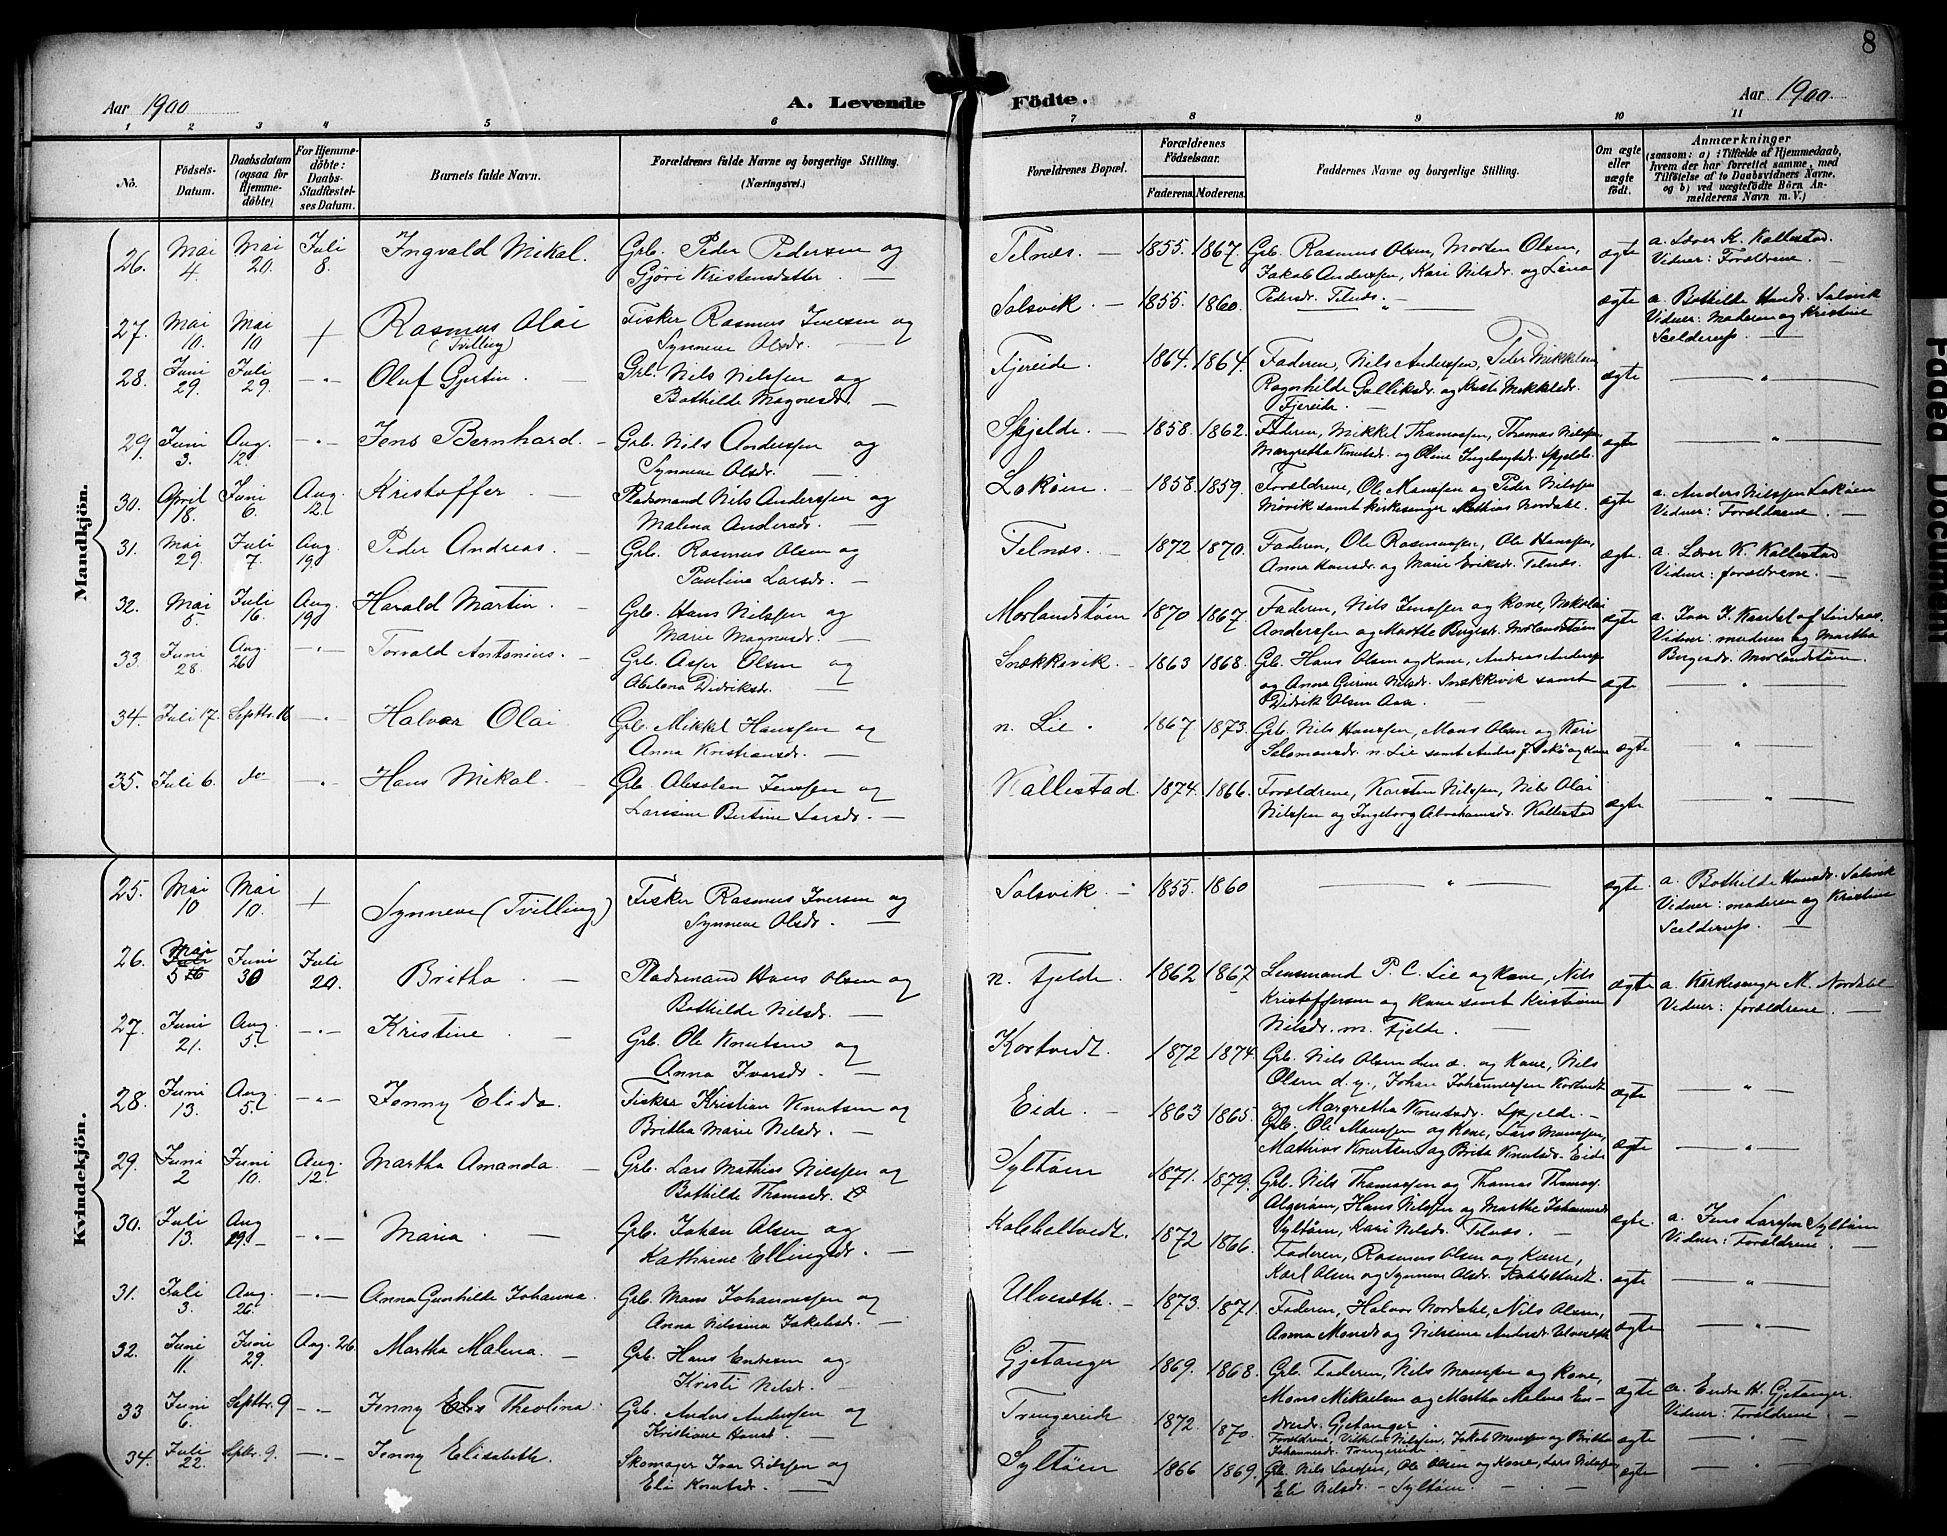 8
Aar 1900
A. Levende Födte.
Aar 1900.
1 2 3 4 5 6 7 8 9 10 11
No.
Födsels-Datum.
Daabsdatum (ogsaa for Hjemme-döbte)
For Hjemme-döbte: Daabs-Stadfæstel-ses Datum.
Barnets fulde Navn.
Forældrenes fulde Navne og borgerlige Stilling. (Næringsvei.)
Forældrenes Bopæl.
Forældrenes Födselsaar.
Faderens. Moderens.
Faddernes Navne og borgerlige Stilling.
Om ægte eller uægte födt.
Anmærkninger
(saasom: a) i Tilfælde af Hjemmedaab, hvem der har forrettet samme, med Tilföielse af to Daabsvidners Navne, og b) ved uægtefödte Börn An-melderens Navn m. V.)
Mandkjön.
26. Mai 4. Mai 20. Juli 8. Ingvald Mikal. Grb. Peder Pedersen og Gjöri Kristensdatter — Telnes. — 1855. 1867. Grb. Rasmus Olsen, Morten Olsen, Jakob Anderssen, Kari Nilsdr. og Lina Pedersdr. Telnes. — ægte a. Lærer K. Kallestad. Vidner: Forældrene. —
27. Mai 10. Mai 10 + Rasmus Olai (Tvilling) Fisker Rasmus Iversen og Synneve Olsdr. — Solsvik. — 1855. 1860. — " — ægte a. Bothilde Hansdr. Solsvik Vidner: Moderen og Kristine Scelderup. —
28. Juni 29. Juli 29. - " - Oluf Gjertin. — Grb. Nils Nilssen og Bothilde Magnesdr. — Fjereide. 1864. 1864. Faderen, Nils Anderssen, Peder Mikkelsen Ragnhilde Gulliksdr. og Kristi Mikkelsdr. Fjereide. — ægte — " —
29. Juni 3. Aug. 12. - " - Jens Bernhard. — Grb. Nils Anderssen og Synneve Olsdr. — Spjelde. — 1858. 1862. Faderen, Mikkel Thomassen, Thomas Nilssen, Margretha Knutsdr. og Oline Ingebrigtsdr. Spjelde. ægte — " —
30. April 18. Juni 6. Aug. 12. Kristoffer — Pladsmand Nils Anderssen og Malena Andersdr. — Loköen. — 1858. 1859. Forældrene, Ole Monssen og Peder Nilssen Mövik samt kirkesanger Mathias Nordahl. ægte a. Anders Nilssen Loköen Vidner: Forældrene. —
31. Mai 29. Juli 7. Aug. 19. Peder Andreas. — Grb. Rasmus Olsen og Paulina Larsdr. — Telnes. — 1872 1870. Faderen, Ole Rasmussen, Ole Hanssen, Anna Hansdr. og Marie Eriksdr. Telnes. ægte a. Lærer K. Kallestad Vidner: forældrene. —
32. Mai 5. Juli 16. Aug. 19. Harald Martin. — Grb. Hans Nilssen og Marie Magnesdr. — Morlandstöen 1870 1867. Faderen, Nils Jenssen og kone, Nikolai Anderssen og Marthe Børgesdr. Morlandstöen ægte a. Ivar J. Kvartel af Lindaas. Vidner: moderen og Martha Børgesdr. Morlandstöen.
33. Juni 28. Aug. 26 - " - Torvald Antonius. — Grb. Asser Olsen og Abelena Didriksdr. — Snekkevik. — 1863 1868. Grb. Hans Olsen og Kone, Andreas Anderssen og Anna Gurine Nilsdr. Snekkevik samt Didrik Olsen Aase. — ægte — " —
34. Juli 17. Septbr. 16 - " - Halvor Olai Grb. Mikkel Hanssen og Anna Kristiansdr. — n. Lie. 1867 1873. Grb. Nils Hanssen, Mons Olsen og Kari Salomonsdr. n. Lie samt Anders J. Lokö og kone ægte "
35. Juli 6. do - " - Hans Mikal. — Grb. Absolon Jenssen og Larssine Bertine Larsdr. — Kallestad. 1874. 1866. Forældrene, Karsten Nilssen, Nils Olai Nilssen og Ingeborg Abrahamsdr. Kallestad ægte — " —
Kvindekjön.
25. Mai 10 Mai 10. + Synneve (Tvilling) Fisker Rasmus Iversen og Synneve Olsdr. — Solsvik. — 1855. 1860 — " — ægte. a. Bothilde Hansdr. Solsvik Vidner: moderen og Kristine Scelderup. —
26. Mai 5 Juni 30 Juli 20. Britha — Pladsmand Hans Olsen og Bothilde Nilsdr. — n. Fjelde. 1862 1867. Lensmand P. C. Lie og kone, Nils Kristoffersen og kone samt Kristiane Nilsdr. m. Fjelde. — ægte a. Kirkesanger M. Nordahl Vidner: forældrene. —
27. Juni 21. Aug. 5. - " - Kristine . Grb. Ole Knutsen og Anna Iversdr. — Kortvedt. 1872 1874. Grb. Nils Olsen den æ. og Kone, Nils Olsen d. y., Johan Johannessen Kortvedt og Margretha Knutsdr. Spjelde. — ægte — " —
28. Juni 13. Aug. 5. - " - Jenny Elida. Fisker Kristian Knutsen og Britha Marie Nilsdr. — Eide. — 1863 1865. Grb. Ole Monssen og Kone, Lars Monssen, Mathias Knutsen og Brita Knutsdr. Eide ægte — " —
29. Juni 2 Juni 10. Aug. 12. Martha Amanda. — Grb. Lars Mathias Nilssen og Bothilde Thomasdr. Syltöen 1871. 1879. Grb. Nils Thomassen og Thomas Thomass. Algeröen, Hans Nilssen og Marthe Johannesdr. Syltöen, Kari Nilsdr. Telnes. — ægte. a. Jens Larssen Syltöen Vidner: Forældrene. —
30. Juli 13. Aug 19. - " - Maria — Grb. Johan Olsen og Kathrine Ellingsdr. — Kobbeltvedt. 1872 1866. Faderen, Rasmus Olsen og Kone, Karl Olsen og Synneve Olsdr. Kobbeltvedt. ægte — " —
31. Juli 3. Aug. 26. - " - Anna Gunhilde Johanna. Grb. Mons Johannessen og Anna Nilssina Jakobsdr. — Ulveseth. — 1873. 1871. Faderen, Halvor Nordahl, Nils Olsen, Anna Monsdr. og Nilssina Andersdr. Ulveseth ægte — " —
32. Juni 11. Juni 29. Aug. 26. Martha Malena. — Grb. Hans Endresen og Kristi Nilsdr. — Gjetanger 1869. 1868. Grb. Faderen, Nils Monssen og Kone, Mons Mikkelsen og Martha Malena En-dresdr. Gjetanger ægte a. Endre H. Gjetanger. Vidner: Forældrene. —
33 Juni 6. Septbr. 9 - " - Jenny Elis Theolina. Grb. Anders Anderssen og Kristiane Hansdr. — Trengereide 1872 1870. Forældrene, Vilhelm Nilssen, Jakob Monssen og Britha Johannesdr. Trengereide. — ægte — " —
34. Juli 22. Spbr. 9. - " - Jenny Elisabeth. Skomager Ivar Nilssen og Eli Knutsdr. — Syltöen 1866 1869. Grb. Nils Larssen, Ole Olsen og Kone, Lars Nilssen, Eli Nilsdr. — Syltöen. — ægte — " —
Faded Document